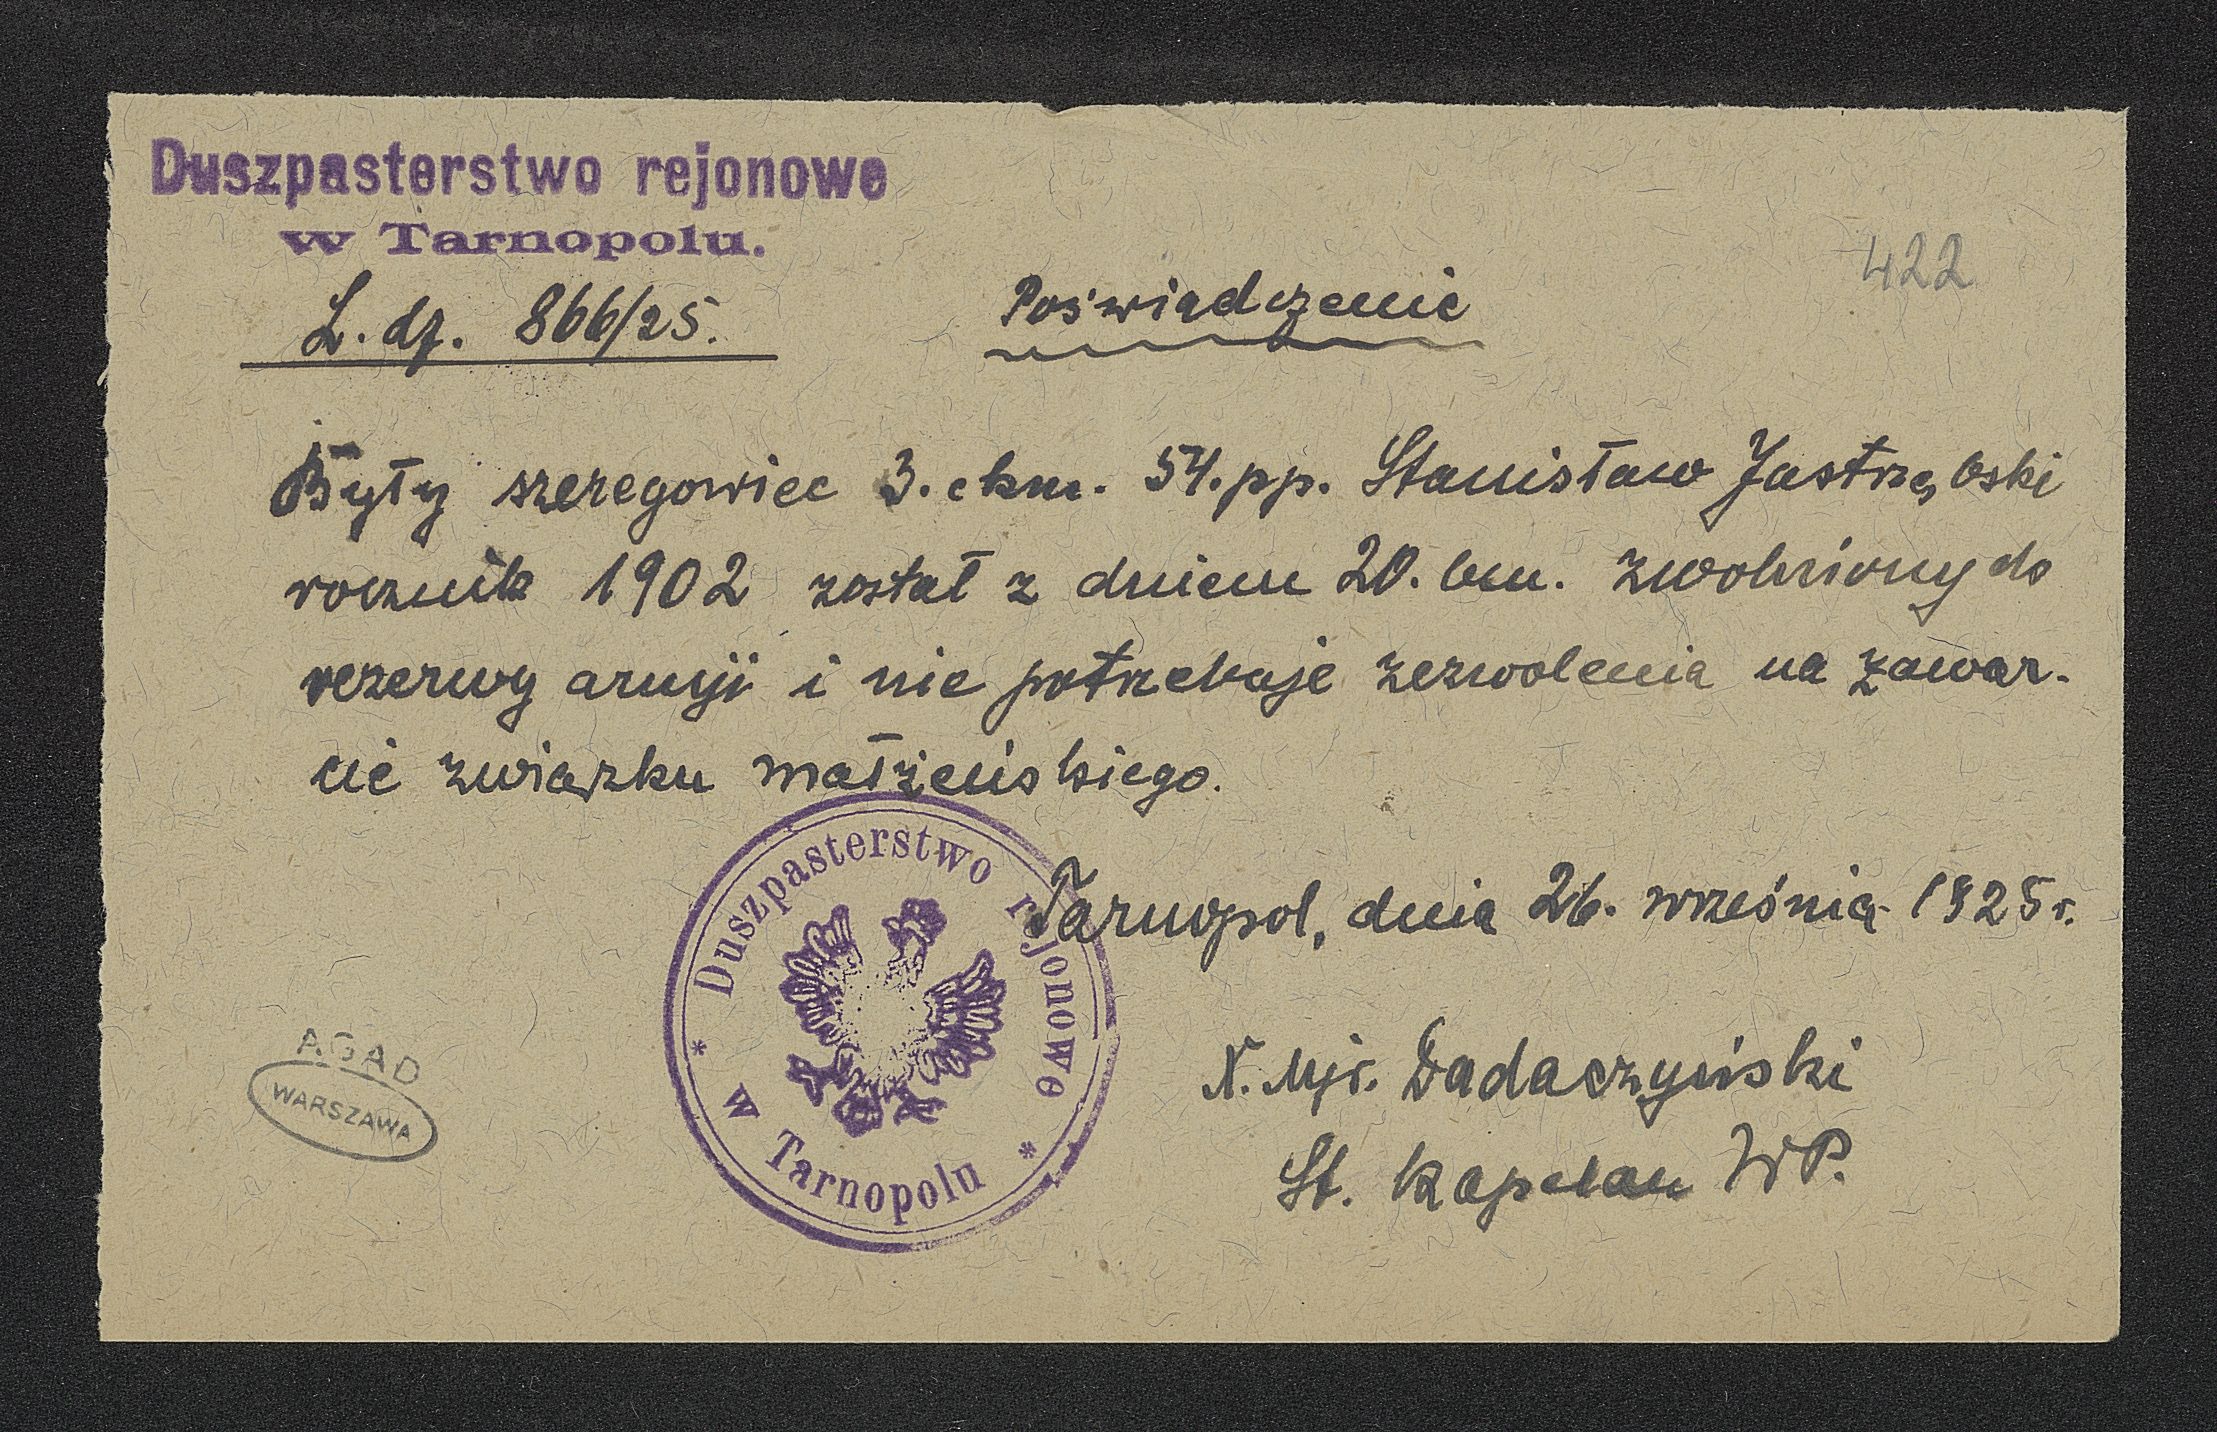 Duszpasterstwo rejonowe
w Tarnopolu.
L. dz. 866/25.
422
Poświadczenie
Były szeregowiec 3. ckm. 54. pp. Stanisław Jastrzębski
rocznik 1902 został z dniem 20. bm. zwolniony do
rezerwy armji i nie potrzebuje zezwolenia na zawar-
cie związku małżeńskiego.
Tarnopol, dnia 26. września 1925 r.
X. Mjr. Dadaczyński
St. Kapelan WP.
* Duszpasterstwo rejonowe *
w Tarnopolu
AGAD
WARSZAWA